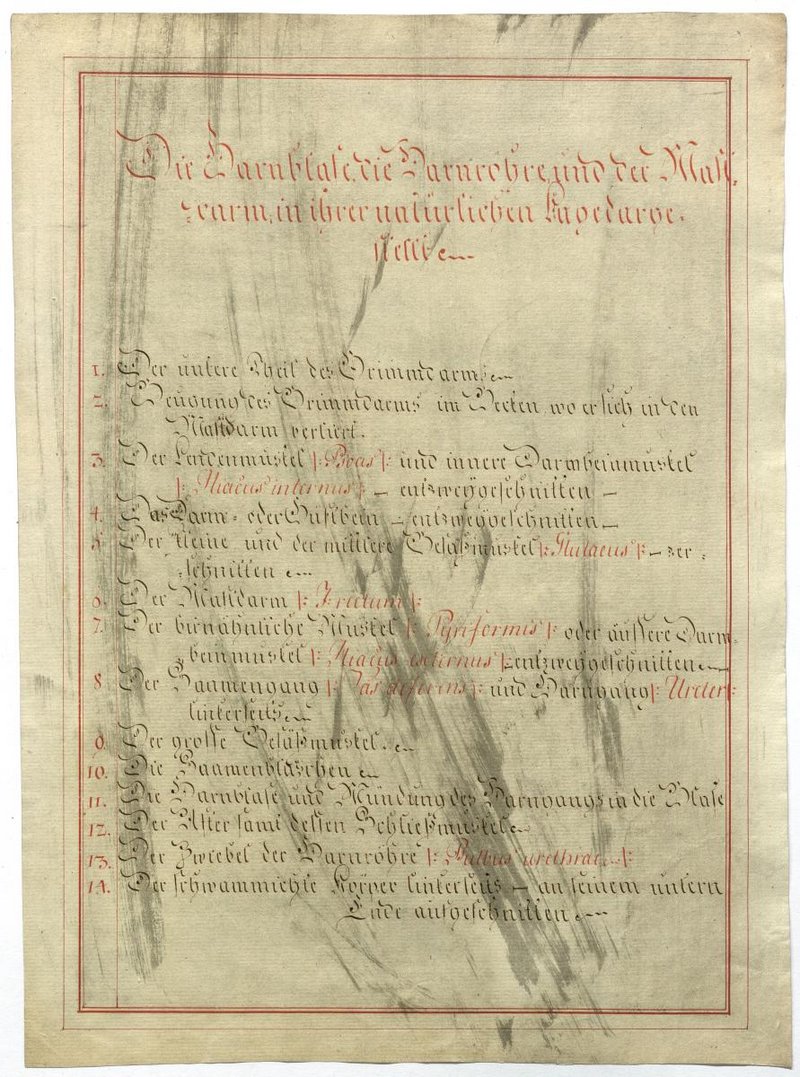 Die Harnblase, die Harnröhre, und der Mast-
=darm, in ihrer natürlichen Lage darge-
stellt
1. Der untere Theil des Grimmdarms
2. Beugung des Grimmdarms im Becken, wo er sich in den
Mastdarm verliert.
3. Der Lendenmuskel |: Psoas :| und innere Darmbeinmuskel
|: Iliacus internus :| – entzweygeschnitten –
4. Das Darm- oder Hüftbein – entzweygeschnitten –
5. Der kleine und der mittlere Gesäßmuskel |: Glutaeus :| – zer-
schnitten
6. Der Mastdarm |: :|
7. Der birnähnliche Muskel |: Pyriformis :| oder äussere Darm-
beinmuskel |: Iliacus externus :| entzweygeschnitten
8. Der Saamengang |: Vas deferens :| und Harngang |: Ureter :|
linkerseits
9. Der grosse Gesäßmuskel.
10. Die Saamenbläschen
11. Die Harnblase und Mündung des Harngangs in die Blase
12. Der After samt dessen Schließmuskel
13. Der Zwiebel der Harnröhre |: Bulbus urethrae :|
14. Der schwammichte Körper linkerseits – an seinem untern
Ende aufgeschnitten.